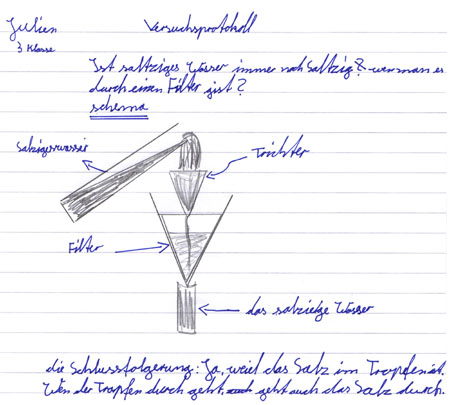 Julien
Versuchsprotokoll
3 Klasse
Ist saltziges Wasser immer noch Saltzig? wen man es
durch einen Filter gist?
schema
Salzigeswasser
Trichter
Filter
das salzieige Wasser
die Schlussfolgerung: Ja, weil das Salz im Tropfen ist.
Wen der Tropfen durch geht geht auch das Salz durch.